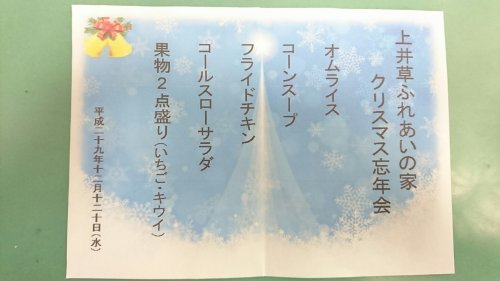 上井草ふれあいの家
クリスマス忘年会
オムライス
コーンスープ
フライドチキン
コールスローサラダ
果物2点盛り(いちご・キウイ)
平成二十九年十二月二十日(水)